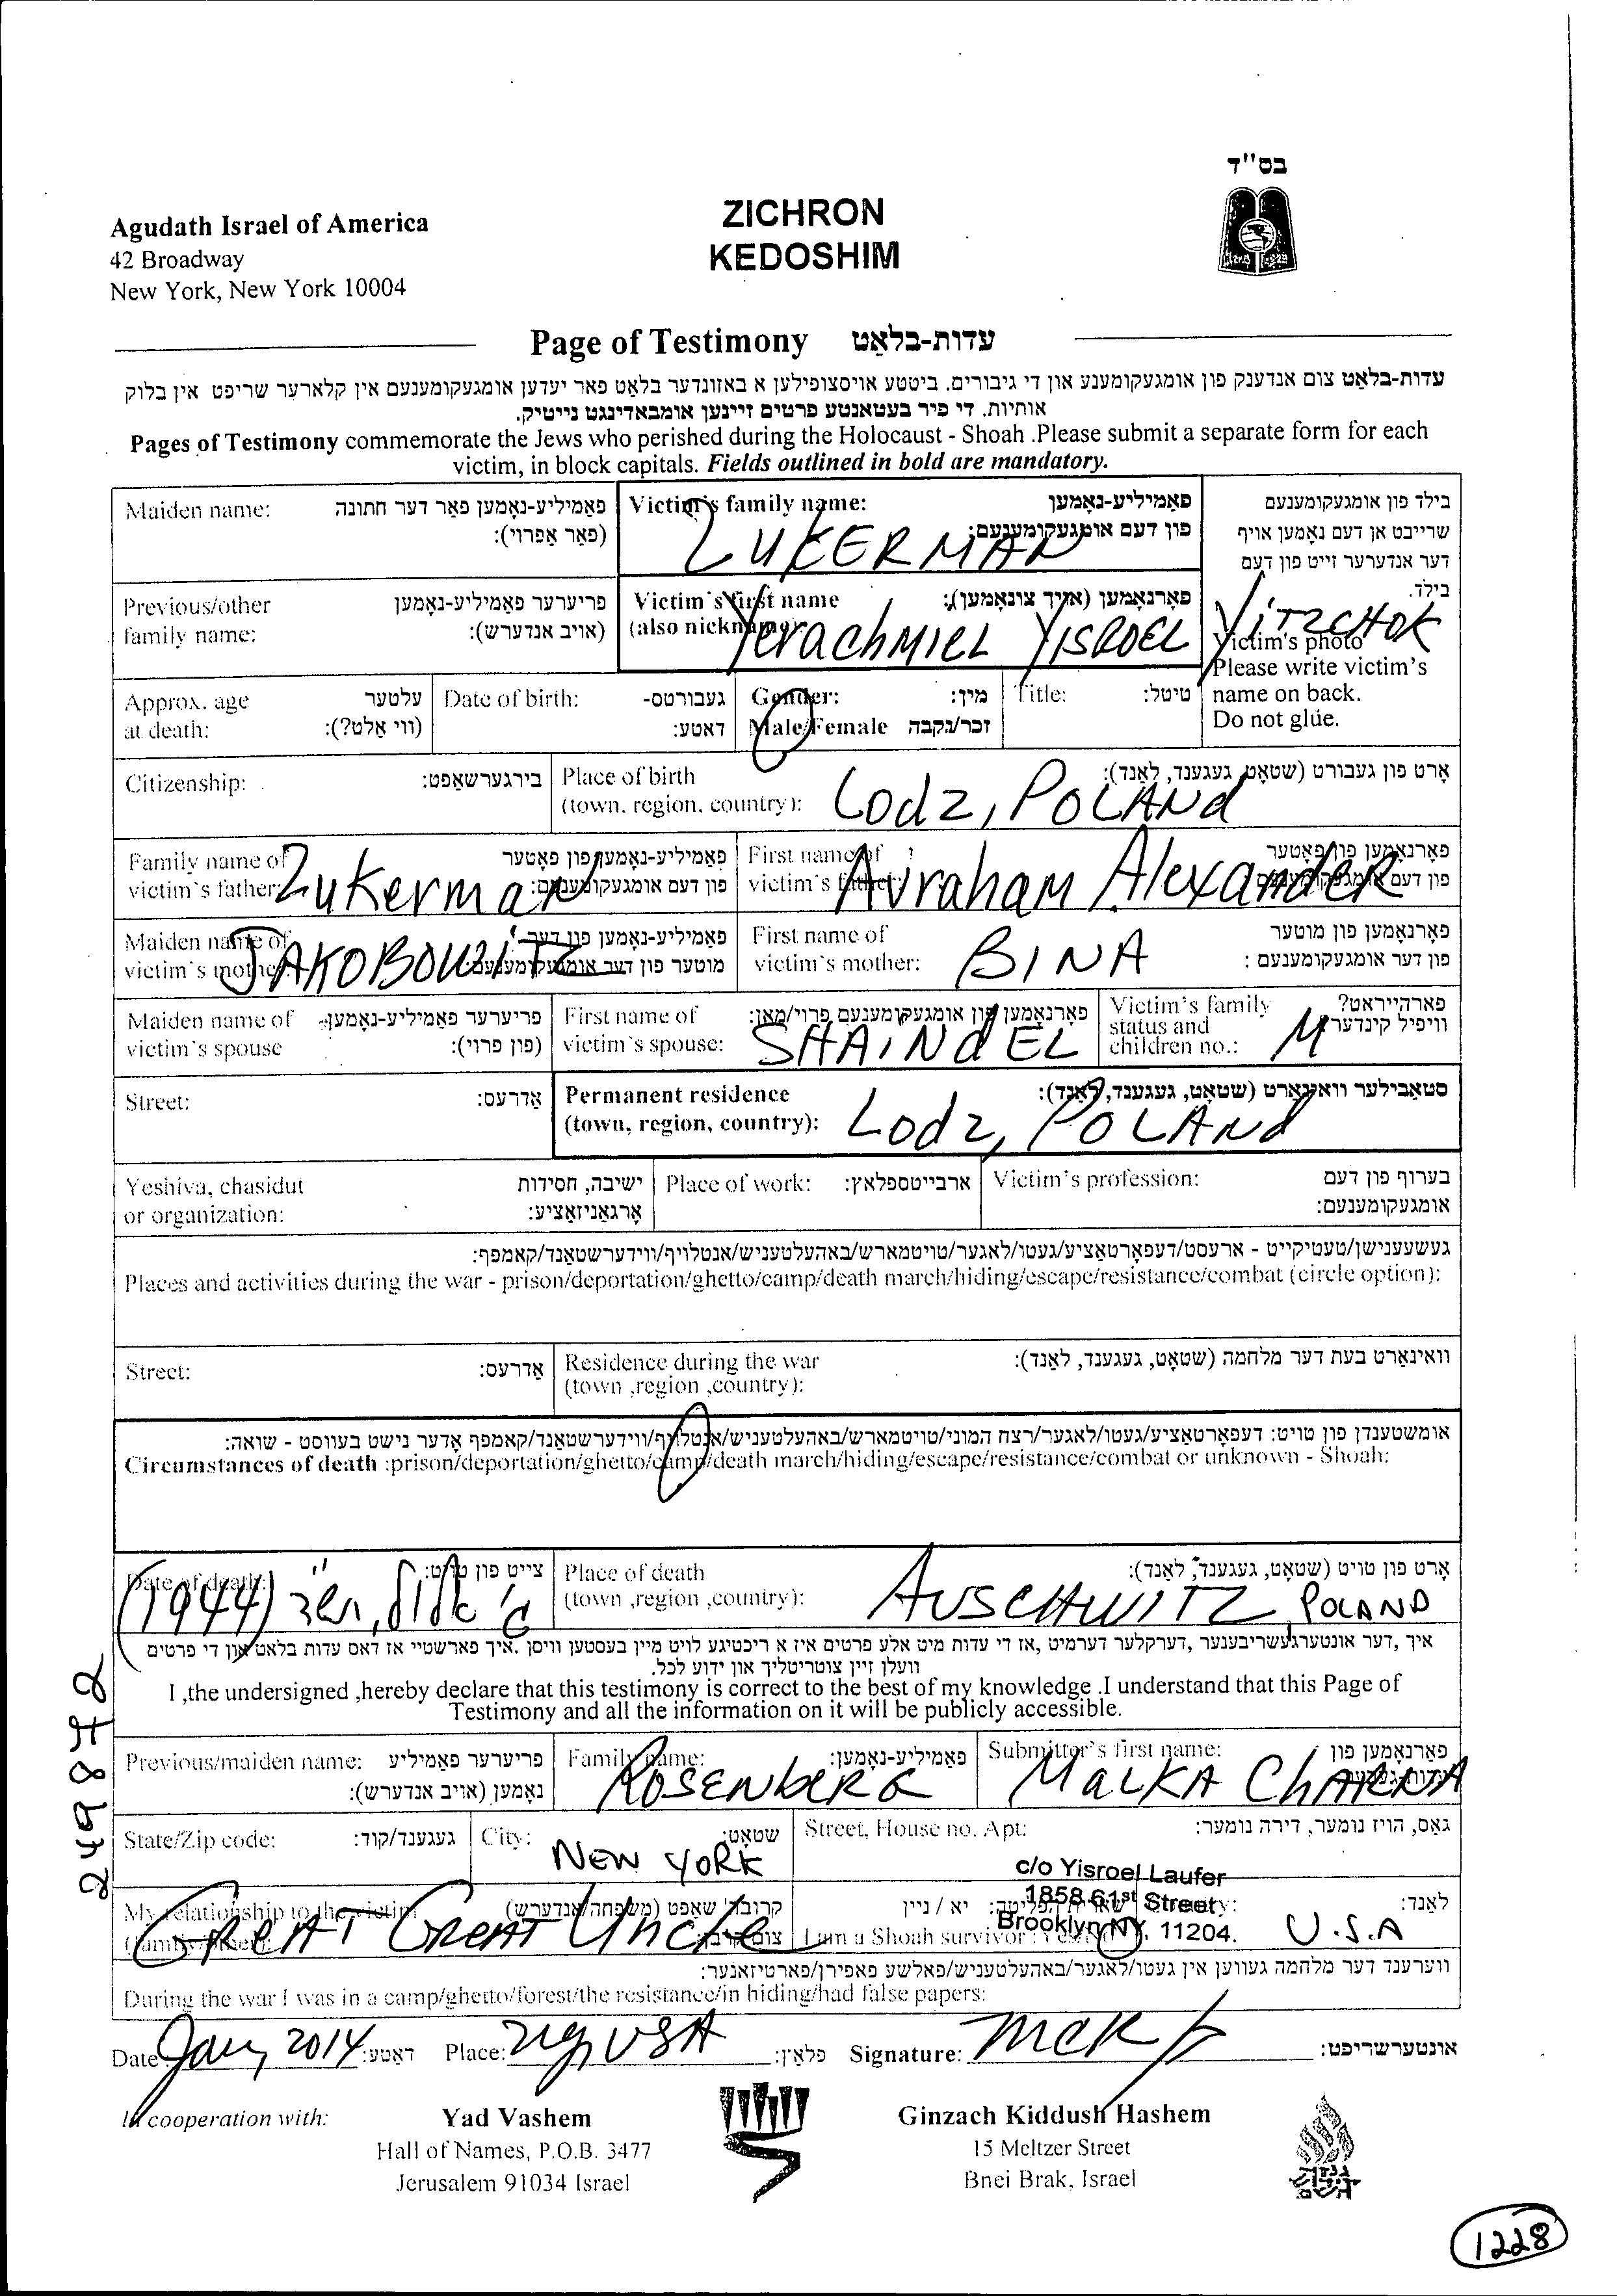 בס"ד
Agudath Israel of America
42 Broadway
New York, New York 10004
ZICHRON
KEDOSHIM
Page of Testimony עדות-בלאַט
עדות-בלאַט צום אנדענק פון אומגעקומענע און די גיבורים. ביטטע אויסצופילען א באזונדער בלאַט פאר יעדען אומגעקומענעם אין קלארער שריפט אין בלוק
אותיות. די פיר בעטאנטע פרטים זיינען אומבאדינגט נייטיק.
Pages of Testimony commemorate the Jews who perished during the Holocaust - Shoah .Please submit a separate form for each
victim, in block capitals. Fields outlined in bold are mandatory.
Maiden name: פאַמיליע-נאָמען פאַר דער חתונה
(פאַר אַפרוי):
Victim's family name: פאַמיליע-נאָמען
פון דעם אומגעקומענעם:
ZUKERMAN
בילד פון אומגעקומענעם
שרייבט אן דעם נאָמען אויף
דער אנדערער זייט פון דעם
בילד.
Previous/other פריערער פאַמיליע-נאָמען
family name: (אויב אנדערש):
Victim's first name פאָרנאָמען (אויך צונאָמען):
(also nickname)
Yerachmiel YISROEL YITZCHOK
Victim's photo
Please write victim's
name on back.
Do not glue.
Approx. age עלטער
at death: (ווי אלט?):
Date of birth: געבורטס-
דאטע:
Gender: מין:
Male/Female זכר/נקבה
Title: טיטל:
Citizenship: בירגערשאַפט:
Place of birth ארט פון געבורט (שטאָט, געגענד, לאַנד):
(town, region, country):
Lodz, POLANd
Family name of פאַמיליע-נאָמען פון פאָטער
victim's father: פון דעם אומגעקומענעם:
Zukerman
First name of פאָרנאָמען פון פאָטער
victim's father: פון דעם אומגעקומענעם
Avraham Alexander
Maiden name of פאַמיליע-נאָמען פון דער
victim's mother: מוטער פון דער אומגעקומענעם:
JAKOBOWITZ
First name of פאָרנאָמען פון מוטער
victim's mother: פון דער אומגעקומענעם :
BINA
Maiden name of פריערער פאַמיליע-נאָמען-
victim's spouse (פון פרוי):
First name of פאָרנאָמען פון אומגעקומענעם פרוי/מאַן:
victim's spouse:
SHAiNdEL
Victim's family פארהייראט?
status and וויפיל קינדער
children no.:
M
Street: אַדרעס:
Permanent residence סטאַבילער וואוינאָרט (שטאָט, געגענד, לאַנד):
(town, region, country):
Lodz, POLANd
Yeshiva, chasidut ישיבה, חסידות
or organization: אָרגאַניזאַציע:
Place of work: ארבייטספלאץ:
Victim's profession: בערוף פון דעם
אומגעקומענעם:
געשעענישן/טעטיקייט - ארעסט/דעפאָרטאַציע/געטו/לאַגער/טויטמארש/באהעלטעניש/אנטלויף/ווידערשטאַנד/קאמפף:
Places and activities during the war - prison/deportation/ghetto/camp/death march/hiding/escape/resistance/combat (circle option):
Street: אַדרעס:
Residence during the war וואוינאָרט בעת דער מלחמה (שטאָט, געגענד, לאַנד):
(town ,region ,country):
אומשטענדן פון טויט: דעפאָרטאַציע/געטו/לאגער/רצח המוני/טויטמארש/באהעלטעניש/אנטלויף/ווידערשטאַנד/קאמפף אָדער נישט בעוווסט - שואה:
Circumstances of death :prison/deportation/ghetto/camp/death march/hiding/escape/resistance/combat or unknown - Shoah:
Date of death: צייט פון טויט:
(1944)
Place of death אָרט פון טויט (שטאָט, געגענד, לאַנד):
(town ,region ,country):
AUSCHWITZ, POLAND
איך ,דער אונטערגעשריבענער ,דערקלער דערמיט ,אז די עדות מיט אלע פרטים איז א ריכטיגע לויט מיין בעסטען וויסן .איך פארשטיי אז דאס עדות בלאט און די פרטים
וועלן זיין צוטריטליך און ידוע לכל.
I ,the undersigned ,hereby declare that this testimony is correct to the best of my knowledge .I understand that this Page of
Testimony and all the information on it will be publicly accessible.
Previous/maiden name: פריערער פאַמיליע
נאָמען (אויב אנדערש):
Family name: פאַמיליע-נאָמען:
ROSENbERG
Submittor's first name: פאָרנאָמען פון
MALKA CHARNA
State/Zip code: געגענד/קוד:
City: שטאָט:
NEW YORK
Street, House no. Apt: גאַס, הויז נומער, דירה נומער:
c/o Yisroel Laufer
1858 61st Street
Brooklyn NY. 11204.
לאַנד:
U.S.A
My relationship to the victim
GREAT GREAT Uncle
I am a Shoah survivor : יא / ניין
ווערענד דער מלחמה געווען אין געטו/לאַגער/באהעלטעניש/פאלשע פאפירן/פארטיזאנער:
During the war I was in a camp/ghetto/forest/the resistance/in hiding/had false papers:
Date: Jan, 2014 דאטע: Place: NY, USA פלאץ: Signature: אונטערשריפט:
In cooperation with:
Yad Vashem
Hall of Names, P.O.B. 3477
Jerusalem 91034 Israel
Ginzach Kiddush Hashem
15 Meltzer Street
Bnei Brak, Israel
1228